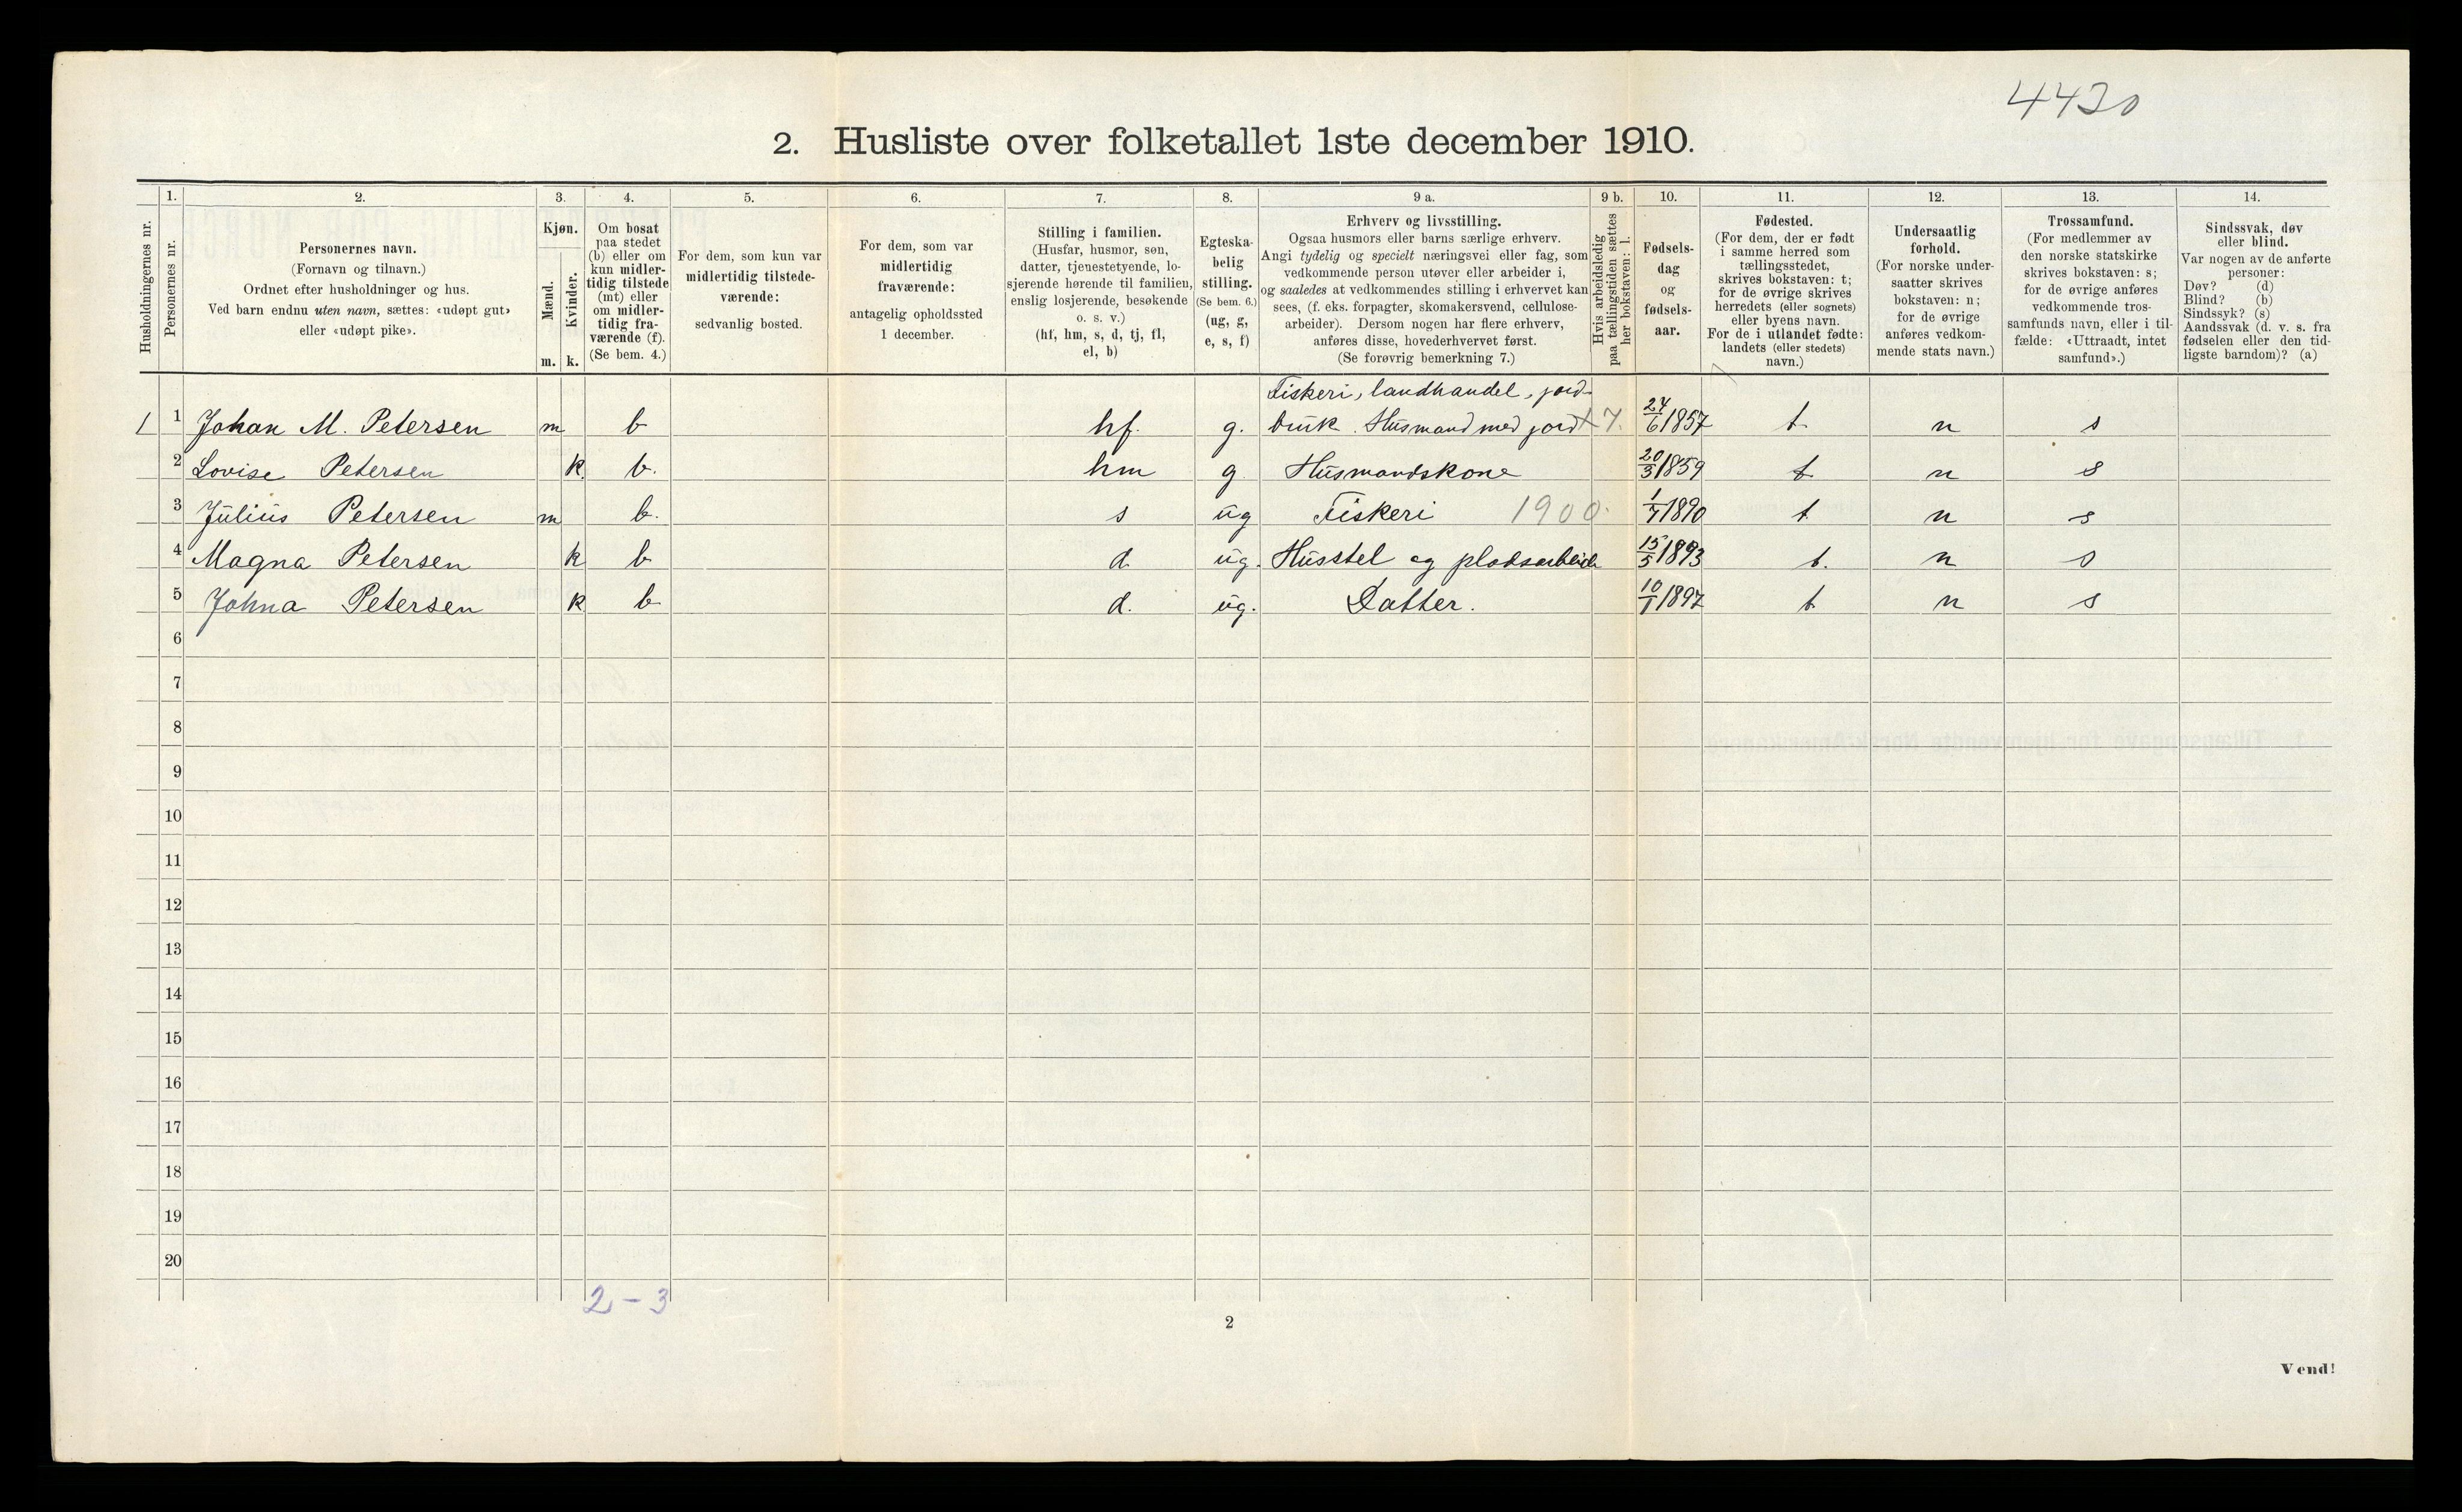 4420
2. Husliste over folketallet 1ste december 1910.
Husholdningernes nr.
1.
Personernes nr.
2.
Personernes navn.
(Fornavn og tilnavn.)
Ordnet efter husholdninger og hus.
Ved barn endnu uten navn, sættes: «udøpt gut»
eller «udøpt pike».
3.
Kjøn.
Mænd.
Kvinder.
m. k.
4.
Om bosat
paa stedet
(b) eller om
kun midler-
tidig tilstede
(mt) eller
om midler-
tidig fra-
værende (f).
(Se bem. 4.)
5.
For dem, som kun var
midlertidig tilstede-
værende:
sedvanlig bosted.
6.
For dem, som var
midlertidig
fraværende:
antagelig opholdssted
1 december.
7.
Stilling i familien.
(Husfar, husmor, søn,
datter, tjenestetyende, lo-
sjerende hørende til familien,
enslig losjerende, besøkende
o. s. v.)
(hf, hm, s, d, tj, fl,
el, b)
8.
Egteska-
belig
stilling.
(Se bem. 6.)
(ug, g,
e, s, f)
9 a.
Erhverv og livsstilling.
Ogsaa husmors eller barns særlige erhverv.
Angi tydelig og specielt næringsvei eller fag, som
vedkommende person utøver eller arbeider i,
og saaledes at vedkommendes stilling i erhvervet kan
sees, (f. eks. forpagter, skomakersvend, cellulose-
arbeider). Dersom nogen har flere erhverv,
anføres disse, hovederhvervet først.
(Se forøvrig bemerkning 7.)
9 b.
Hvis arbeidsledig
paa tællingstiden sættes
her bokstaven: l.
10.
Fødsels-
dag
og
fødsels-
aar.
11.
Fødested.
(For dem, der er født
i samme herred som
tællingsstedet,
skrives bokstaven: t;
for de øvrige skrives
herredets (eller sognets)
eller byens navn.
For de i utlandet fødte:
landets (eller stedets)
navn.)
12.
Undersaatlig
forhold.
(For norske under-
saatter skrives
bokstaven: n;
for de øvrige
anføres vedkom-
mende stats navn.)
13.
Trossamfund.
(For medlemmer av
den norske statskirke
skrives bokstaven: s;
for de øvrige anføres
vedkommende tros-
samfunds navn, eller i til-
fælde: «Uttraadt, intet
samfund».)
14.
Sindssvak, døv
eller blind.
Var nogen av de anførte
personer:
Døv? (d)
Blind? (b)
Sindssyk? (s)
Aandssvak (d. v. s. fra
fødselen eller den tid-
ligste barndom)? (a)
Fiskeri, landhandel, jord-
1 1 Johan M. Petersen m b hf. g. bruk. Husmand med jord X 7. 24/6 1857 t n s
2 Lovise Petersen k. b. hm g Husmandskone 20/3 1859 t n s
3 Julius Petersen m b. s ug Fiskeri 1900. 1/7 1890 t n s
4 Magna Petersen k b d ug. Husstel og pladsarbeide 15/5 1893 t. n s
5 Johna Petersen k b d. ug. Datter. 10/1 1897 t n s
6
7
8
9
10
11
12
13
14
15
16
17
18
19
20
2-3
2
Vend!